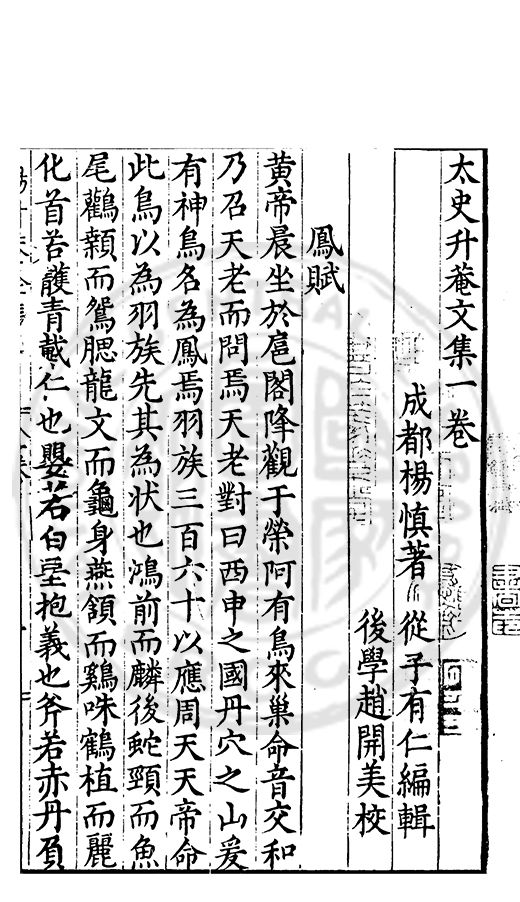 太史升菴文集一卷
成都楊慎著 從子有仁編輯
後學趙開美校
鳳賦
黃帝晨坐於扈閣降觀于榮阿有鳥來巢命音交和
乃召天老而問焉天老對曰西申之國丹穴之山爰
有神鳥名為鳳焉羽族三百六十以應周天天帝命
此鳥以為羽族先其為狀也鴻前而麟後蛇頸而魚
尾鸛顙而鴛腮龍文而龜身燕頷而雞咮鶴植而麗
化首若䕶青戴仁也嬰若白垩抱義也斧若赤丹負